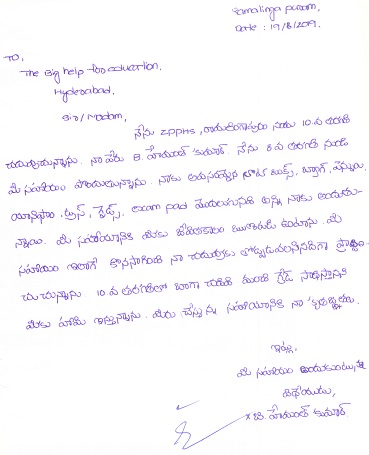 Ramalinga puram,
Date : 19/8/2019.
TO,
The Big help for education,
Hyderabad,
Sir/Madam,
నేను ZPPHS, రామలింగాపురం నందు 10 వ తరగతి
చదువుచున్నాను. నా పేరు B. హేమంత్ కుమార్. నేను 8 వ తరగతి నుండి
మీ సహాయం పొందుచున్నాను. నాకు అవసరమైన నోట్ బుక్స్, బ్యాగ్, పెన్నులు,
యూనిఫాం, ప్లేట్స్, exam pad మొదలుగునవి అన్ని నాకు అందుచు-
న్నాయి. మీ సహాయానికి మీకు జీవితకాలం ఋణపడి ఉంటాను. మీ
సహాయం ఇలాగే కొనసాగించి నా చదువుకు తోడ్పడవలసినదిగా ప్రార్థిం-
చుచున్నాను. 10 వ తరగతిలో బాగా చదివి మంచి గ్రేడ్ సాధిస్తానని
మీకు హామీ ఇస్తున్నాను. మీరు చేస్తున్న సహాయానికి నా కృతజ్ఞతలు.
ఇట్లు,
మీ సహాయం అందుకుంటున్న
విధేయుడు,
బి. హేమంత్ కుమార్